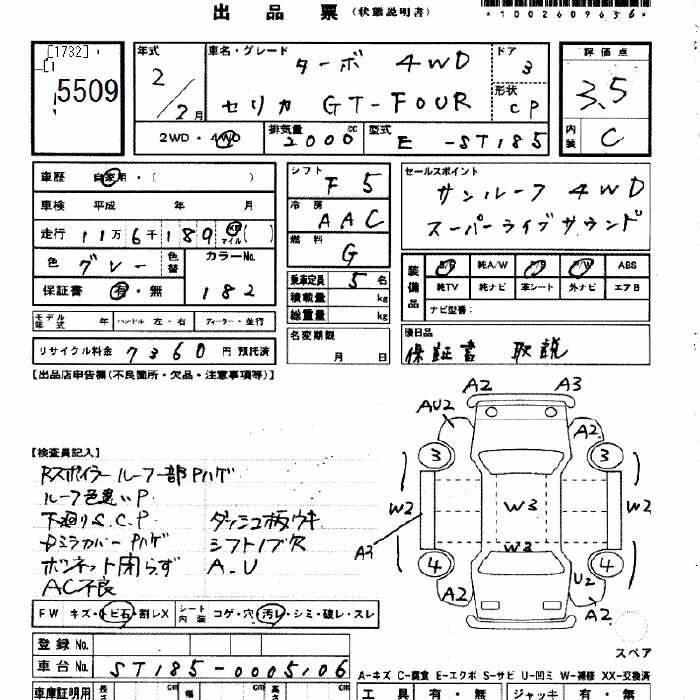 出品票 (状態説明書)
*1002609656*
[1732]
5509
年式 2/2月
車名・グレード ターボ 4WD
セリカ GT-FOUR
ドア 3
形状 CP
評価点 3.5
内装 C
2WD・4WD 排気量 2000 cc 型式 E-ST185
車歴 自家用・( )
車検 平成 年 月
走行 11万6千189 km マイル ( )
色 グレー 色替 カラーNo. 182
保証書 有・無
シフト F5
冷房 AAC
燃料 G
乗車定員 5 名
積載量 kg
総重量 kg
セールスポイント
サンルーフ 4WD
スーパーライブサウンド
装備品 P/S 純A/W P/W ABS
純TV 純ナビ 革シート 外ナビ エアB
ナビ型番:
モデル年式 年 ハンドル 左・右 ディーラー・並行
名変期限 月 日
後日品
保証書 取説
リサイクル料金 7360 円 預託済
[出品店申告欄(不良箇所・欠品・注意事項等)]
A2 A3
AU2 A2
3 3
【検査員記入】
Rスポイラー ルーフ一部Pハゲ
ルーフ色違いP
下廻りS.C.P ダッシュ板ウキ
ドミラカバーPハゲ シフトノブ欠
ボンネット閉らず A.U
AC不良
W2 W3 W2
A3 W3
4 4
A2 U2 A2
FW キズ・トビ石・割レX シート内装 コゲ・穴・汚レ・シミ・破レ・スレ
スペア
登録No.
車台No. ST185-0005106
A-キズ C-腐食 E-エクボ S-サビ U-凹ミ W-補修 XX-交換済
車庫証明用 長さ cm 幅 cm 高さ cm
工具 有・無 ジャッキ 有・無